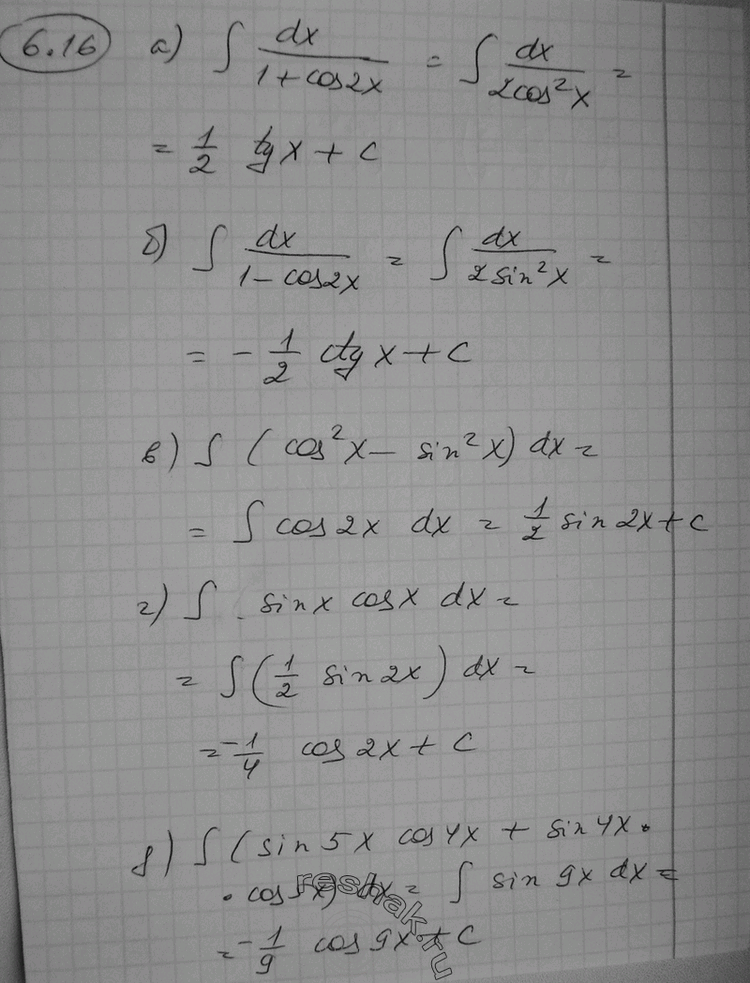 6.16 а) ∫ dx/(1+cos2x) = ∫ dx/(2cos²x) =
= 1/2 tgx + C
б) ∫ dx/(1-cos2x) = ∫ dx/(2sin²x) =
= - 1/2 ctgx + C
в) ∫ (cos²x - sin²x) dx =
= ∫ cos2x dx = 1/2 sin2x + C
г) ∫ sinx cosx dx =
= ∫ (1/2 sin2x) dx =
= -1/4 cos2x + C
д) ∫ (sin5x cos4x + sin4x ·
· cos5x) dx = ∫ sin9x dx =
= -1/9 cos9x + C
reshak.ru